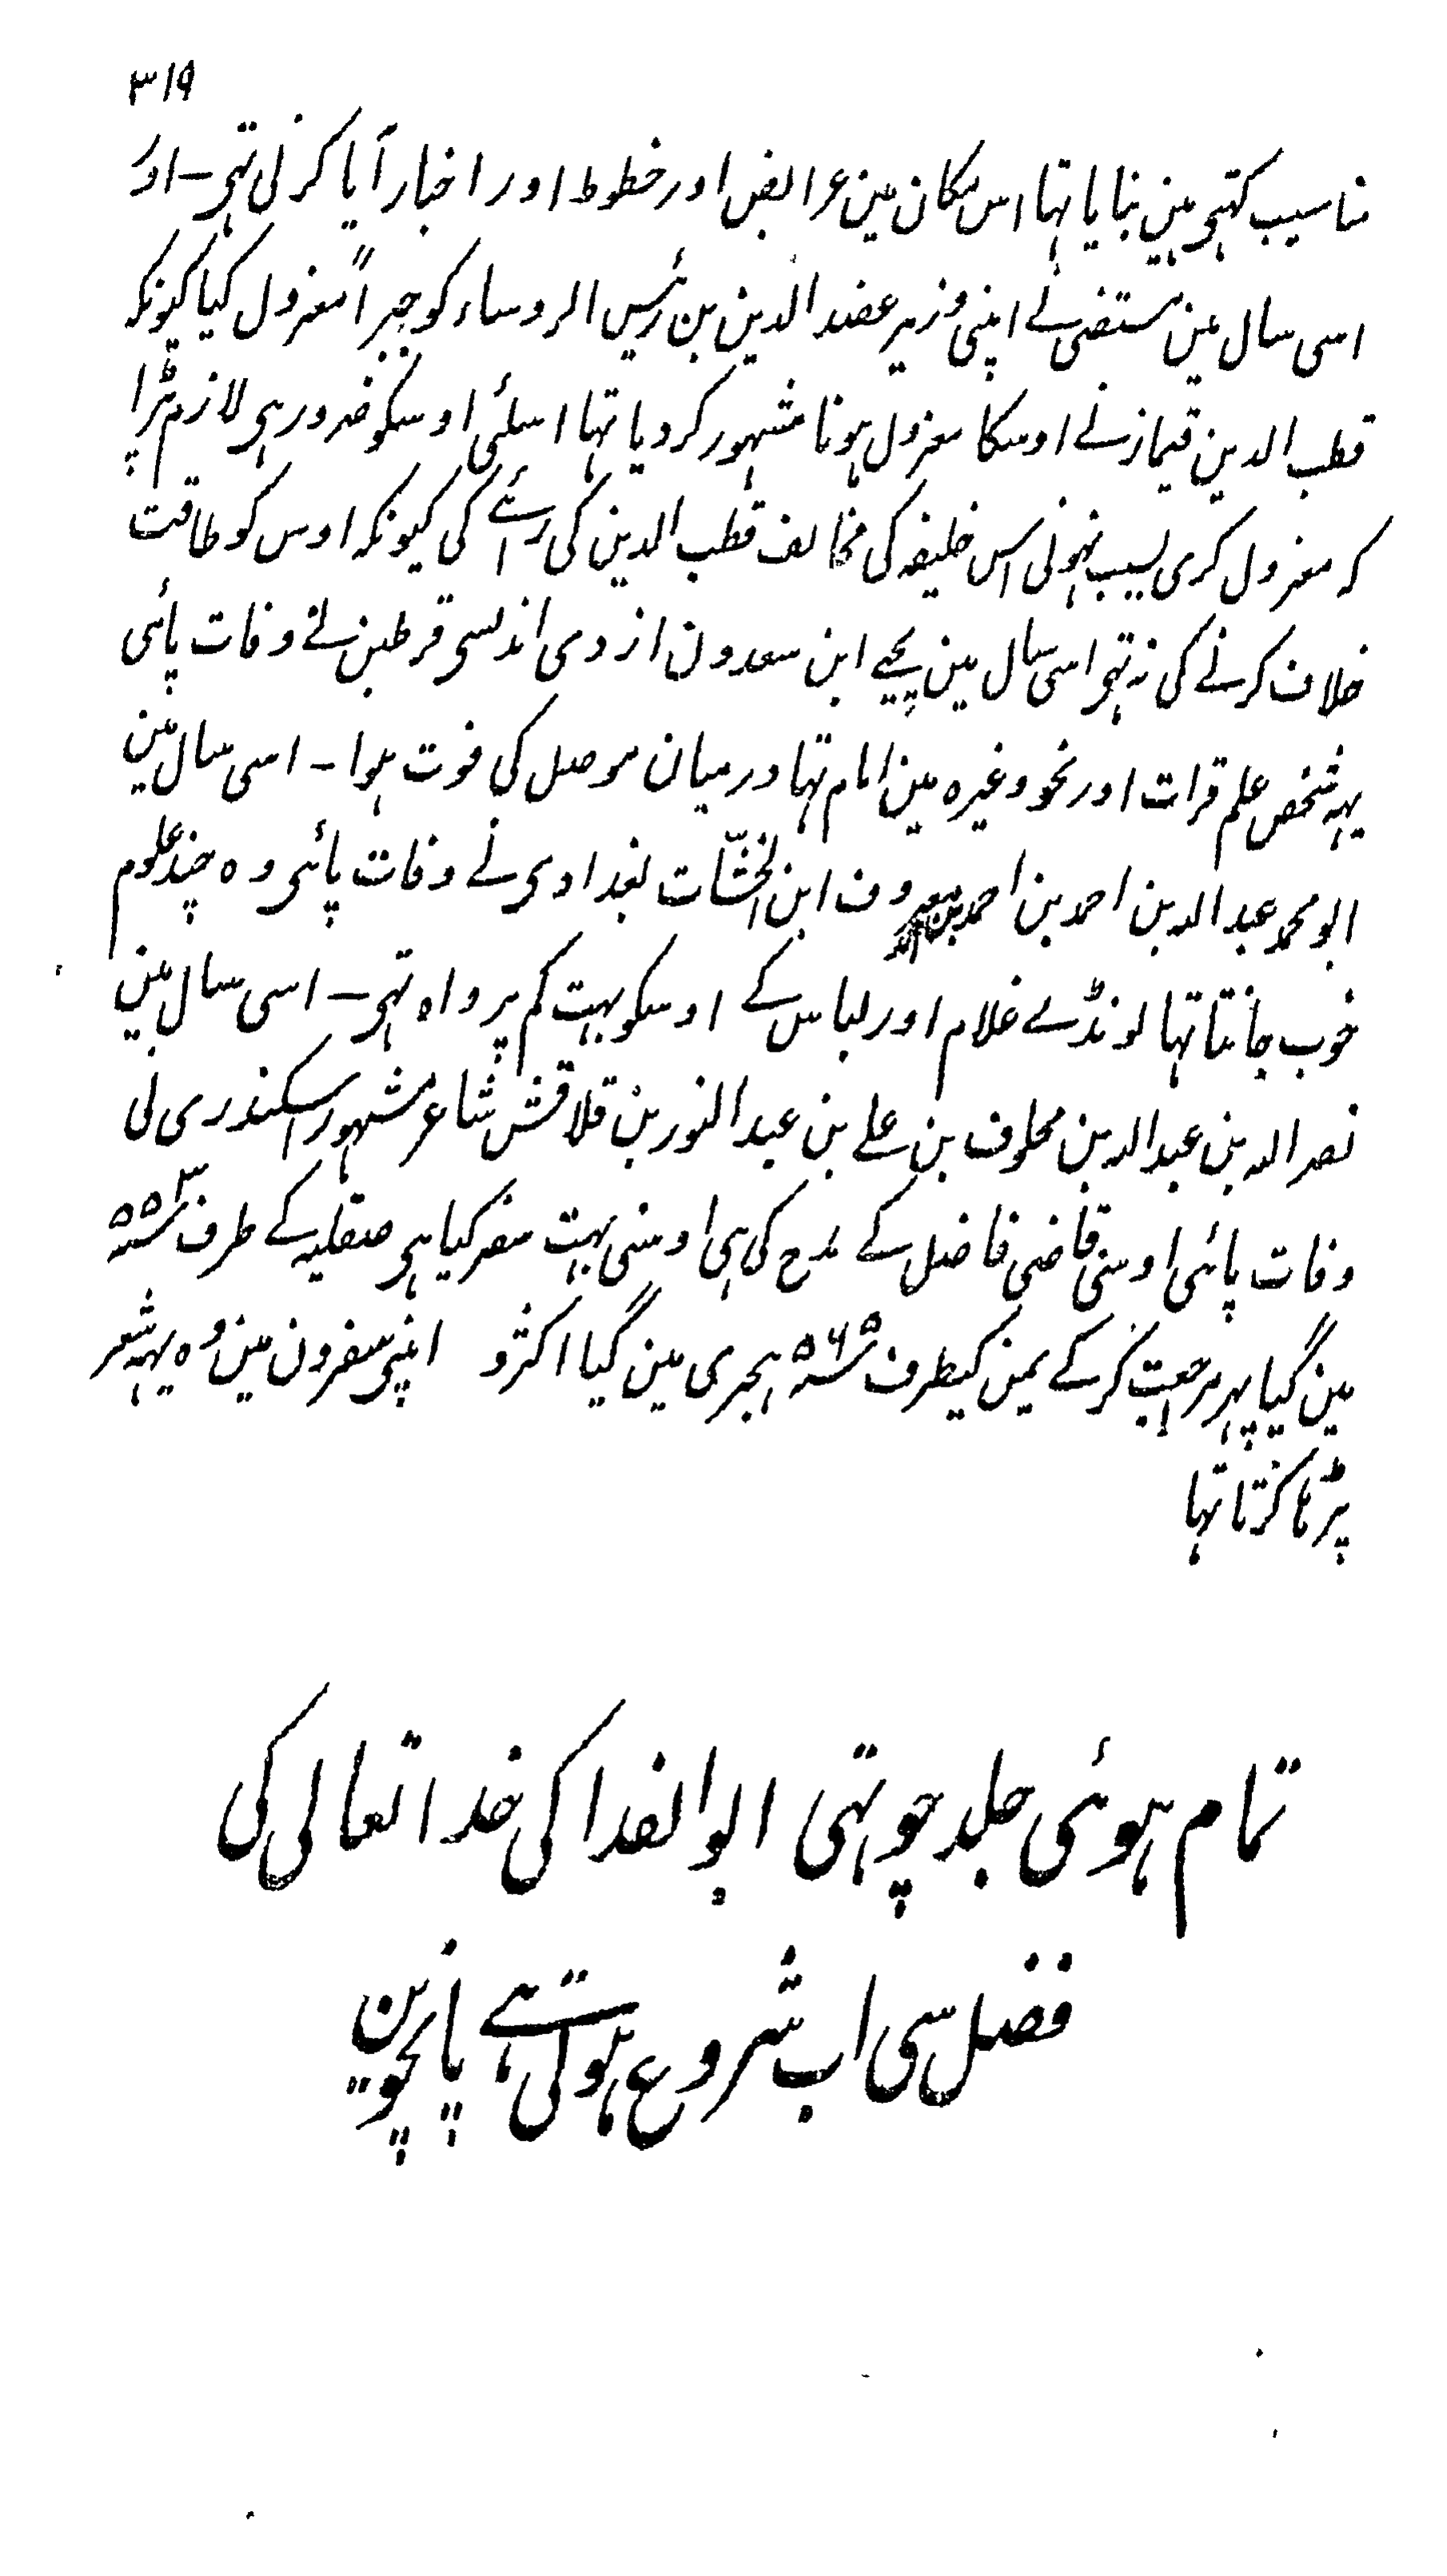 ۳۱۹
مناسیب کہتی ہین بنایا تہا اس مکان مین عرایض اور خطوط اور اخبار آیا کرتی تہی ـ اور
اسی سال مین مستضی نے اپنی وزیر عضد الدین بن رئیس الروساء کو جبراً معزول کیا کیونکہ
قطب الدین قیماز نے اوسکا معزول ہونا مشہور کردیا تہا اسلئی اوسکو ضرور ہی لازم پڑا
کہ معزول کری بسبب نہونی اس خلیفہ کی مخالف قطب الدین کی رائے کی کیونکہ اوس کو طاقت
خلاف کرنے کی نہ تہی اسی سال مین یحیے ابن سعدون ازدی اندلسی قرطبی نے وفات پائی
یہہ شخص علم قرات اور نحو وغیرہ مین امام تہا درمیان موصل کی فوت ہوا ـ اسی سال مین
ابو محمد عبد الله بن احمد بن احمد بن احمد معروف ابن الخشّات بغدادی نے وفات پائی وہ چند علوم
خوب جانتا تہا لونڈے غلام اور لباس کے اوسکو بہت کم پرواہ تہی ـ اسی سال مین
نصر الله بن عبد الله بن مخلوف بن علے بن عبد النور بن قلاقش شاعر مشہور اسکندری نی
وفات پائی اوسنی قاضی فاضل کے مدح کی ہی اوسنی بہت سفر کیا ہی صقلیہ کے طرف سنہ ۵۵۳
مین گیا پہر مرجعت کرکے یمن کیطرف سنہ ۵۶۵ ہجری مین گیا اکثر و اپنی سفرون مین وہ یہہ شعر
پڑہا کرتا تہا
تمام ہوئی جلد چوتہی ابو الفدا کی خدا تعالی کی
فضل سی اب شروع ہوتی ہے پانچوین